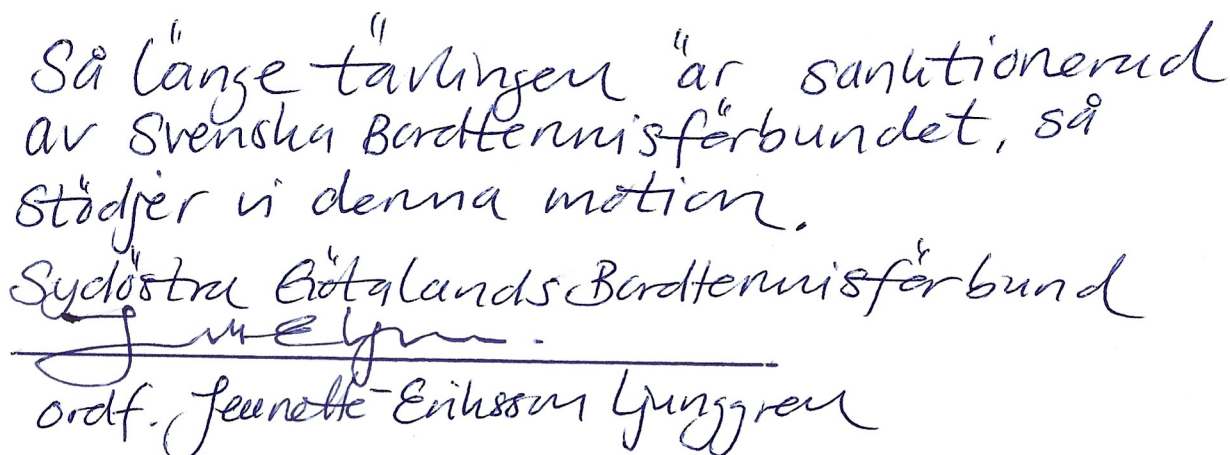 Så länge tävlingen är sanktionerad
av Svenska Bordtennisförbundet, så
stödjer vi denna motion.
Sydöstra Götalands Bordtennisförbund
ordf. Jeanette Eriksson Ljunggren